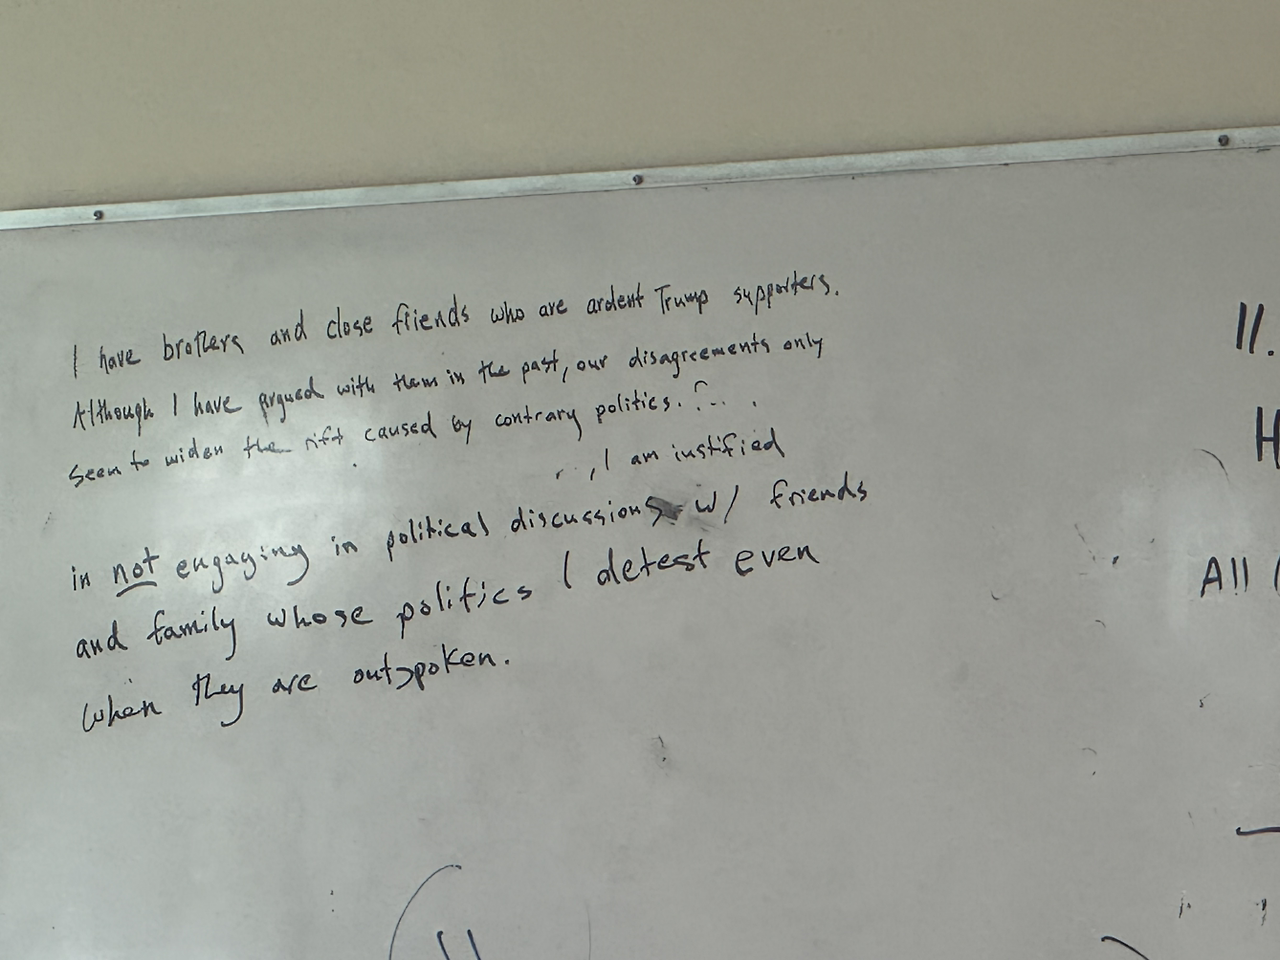 I have brothers and close friends who are ardent Trump supporters.
Although I have argued with them in the past, our disagreements only
seem to widen the rift caused by contrary politics.
, I am justified
in not engaging in political discussions w/ friends
and family whose politics I detest even
when they are outspoken.
11.
H
All